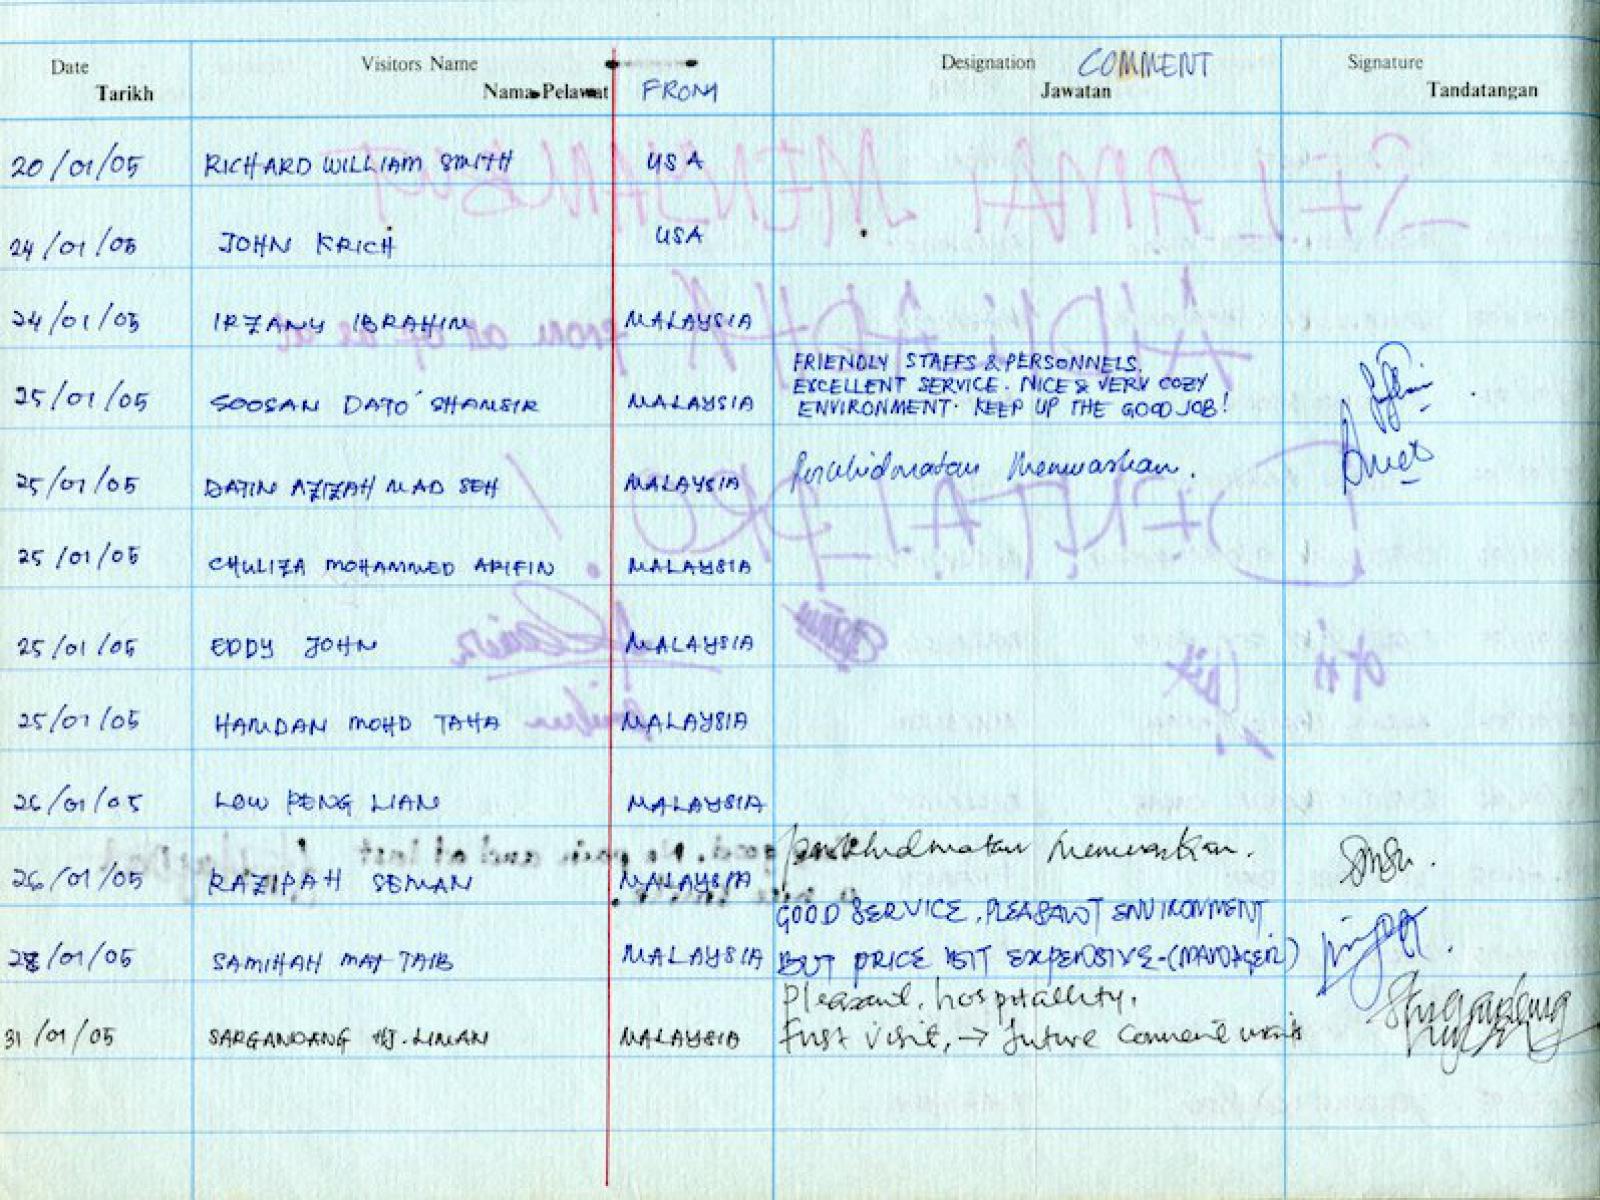 Date Visitors Name Designation COMMENT Signature
Tarikh Nama Pelawat FROM Jawatan Tandatangan
20/01/05 RICHARD WILLIAM SMITH USA
24/01/05 JOHN KRICH USA
24/01/05 IRZANY IBRAHIM MALAYSIA
FRIENDLY STAFFS & PERSONNELS.
EXCELLENT SERVICE. NICE & VERY COZY
25/01/05 SOOSAN DATO' SHAMSIR MALAYSIA ENVIRONMENT. KEEP UP THE GOOD JOB!
25/01/05 DATIN AZIZAH MAD SEH MALAYSIA Perkhidmatan Memuaskan.
25/01/05 CHULIZA MOHAMMED ARIFIN MALAYSIA
25/01/05 EDDY JOHN MALAYSIA
25/01/05 HAMDAN MOHD TAHA MALAYSIA
26/01/05 LOW PENG LIAN MALAYSIA
perkhidmatan memuaskan.
26/01/05 RAZIPAH SEMAN MALAYSIA
GOOD SERVICE, PLEASANT ENVIRONMENT
28/01/05 SAMIHAH MAT TAIB MALAYSIA BUT PRICE EXPENSIVE-(MANAGER)
Pleasant, hospitallity.
31/01/05 SARGANDANG HJ. LIMAN MALAYSIA First visit, → future comment